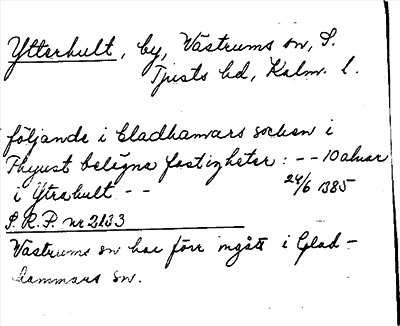 Ytterhult, by, Västrums sn, S.
Tjusts hd, Kalm. l.
följande i Gladhamars socken i
Thyust belägna fastigheter: -- 10 alnar
i Ytrahult -- 24/6 1385
S. R. P. nr 2133
Västrums sn har förr ingått i Glad-
hammars sn.